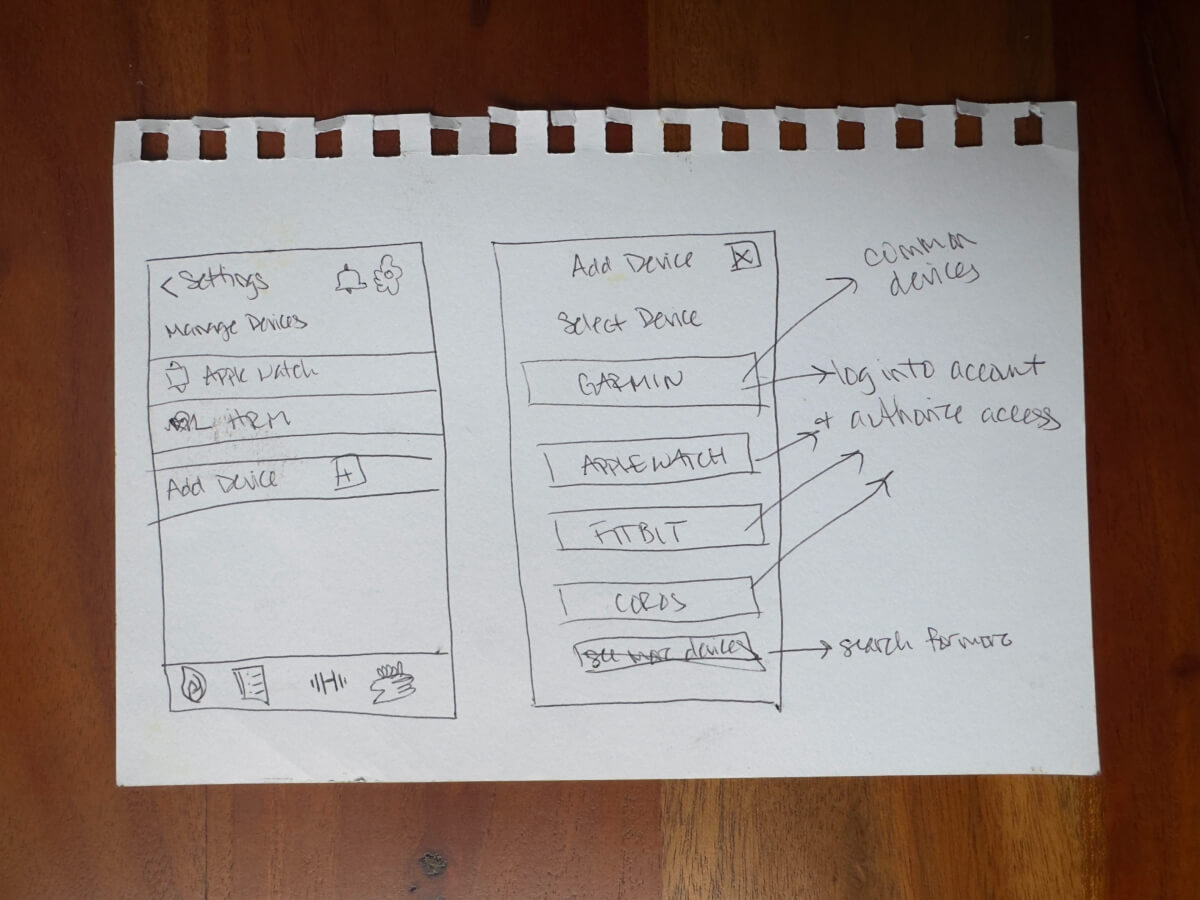 < Settings
Manage Devices
Apple Watch
HRM
Add Device +
Add Device X
Select Device
GARMIN
APPLE WATCH
FITBIT
COROS
See more devices
common
devices
log into account
+ authorize access
search for more